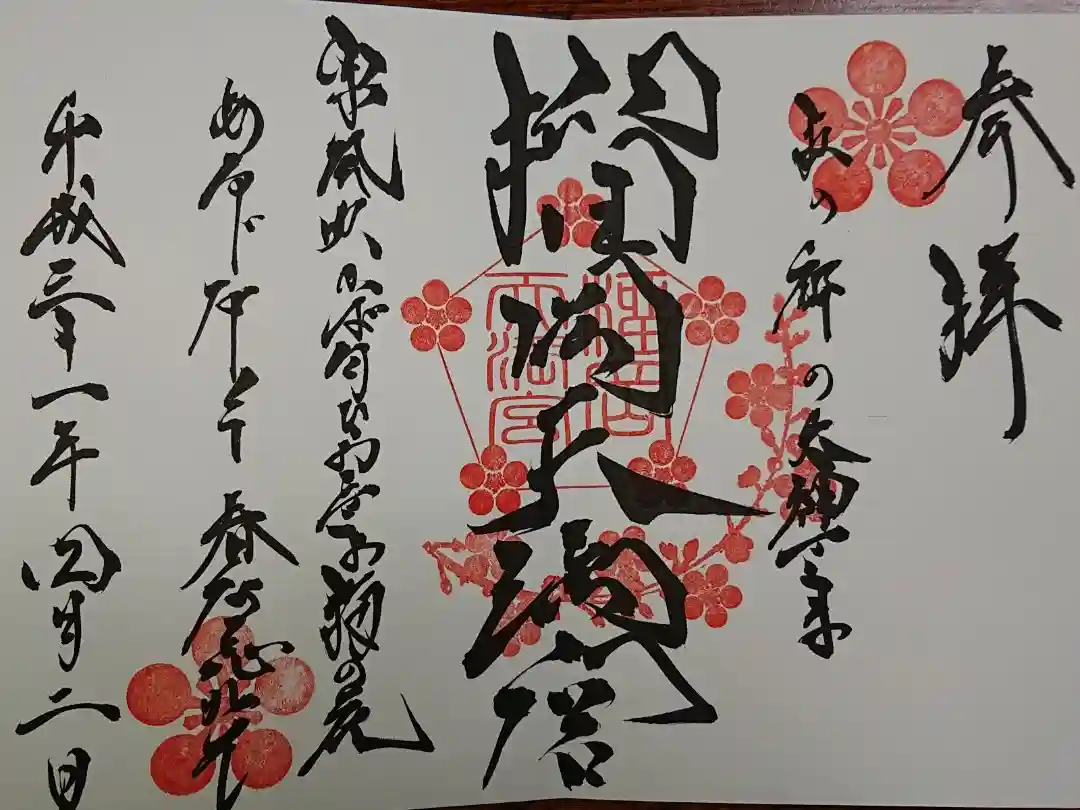 参拝
杜の都の天神さま
榴岡天満宮
東風吹かば匂ひおこせよ梅の花
あるじなしとて 春な忘れそ
平成三十一年四月二日